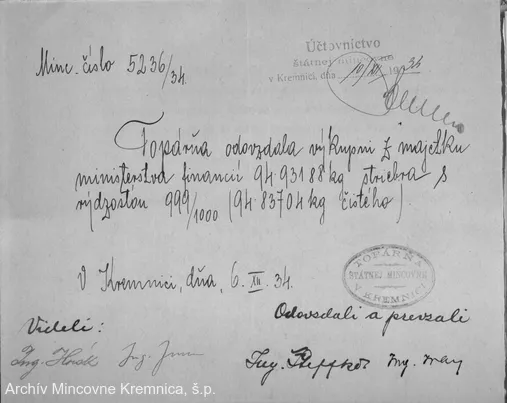 Minc. číslo 5236/34.
Účtovníctvo
štátnej mincovne
v Kremnici, dňa 10/XII 1934
Topárňa odovzdala výkupni z majetku
ministerstva financií 94˙93188 kg striebra s
rýdzosťou 999/1000 (94˙83704 kg čistého).
V Kremnici, dňa, 6. XII. 34.
TOPÁRŇA
ŠTÁTNEJ MINCOVNE
V KREMNICI
Odovsdali a prevzali
Videli:
Ing. Ing.
Ing. Ing.
Archív Mincovne Kremnica, š.p.